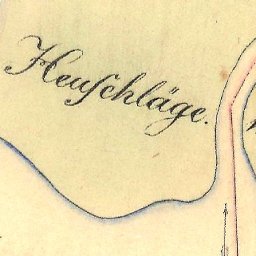 Heuſchläge.